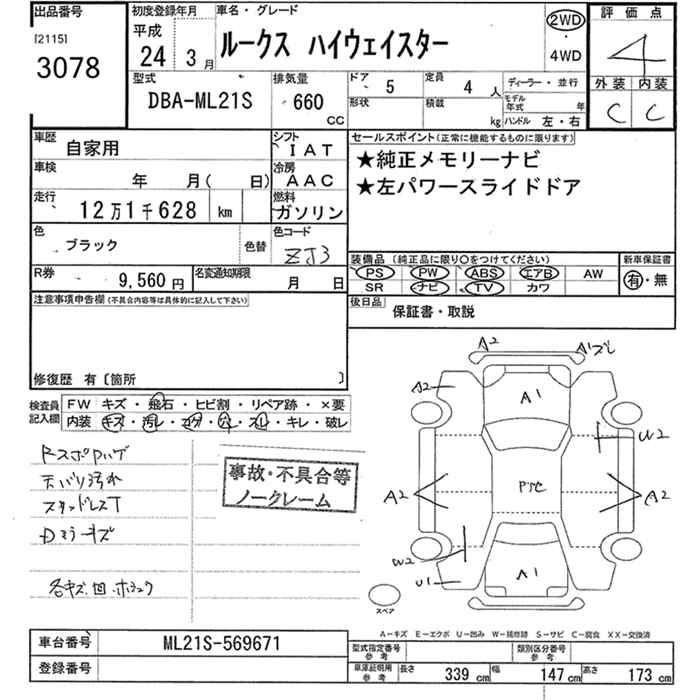 出品番号
[2115]
3078
初度登録年月
平成
24年 3月
車名・グレード
ルークス ハイウェイスター
2WD
・
4WD
評価点
4
外装 内装
C C
型式
DBA-ML21S
排気量
660
CC
ドア 5
形状
定員 4 人
積載 kg
ディーラー・並行
モデル年式 年
ハンドル 左・右
車歴
自家用
シフト
IAT
車検
年 月( 日)
冷房
AAC
走行
12万1千628 km
燃料
ガソリン
色
ブラック
色替
色コード
ZJ3
R券
9,560円
名変通知期限
月 日
セールスポイント(正常に機能するものに限ります)
★純正メモリーナビ
★左パワースライドドア
装備品 (純正品に限り○をつけてください)
PS PW ABS エアB AW
SR ナビ TV カワ
新車保証書
有・無
後日品
保証書・取説
注意事項申告欄(不具合内容等は具体的に記入して下さい)
修復歴 有〔箇所 〕
検査員記入欄
FW キズ・飛石・ヒビ割・リペア跡・×要
内装 キズ・汚レ・コゲ・穴・スレ・キレ・破レ
天バリ汚れ
スタッドレスT
事故・不具合等
ノークレーム
A2
A1スレ
A2
A1
W2
A2
A2
W2
U1
A1
スペア
A-キズ E-エクボ U-凹み W-補修跡 S-サビ C-腐食 XX-交換済
車台番号
ML21S-569671
登録番号
型式指定番号
参考
類別区分番号
参考
車庫証明用
参考
長さ 339 cm 幅 147 cm 高さ 173 cm